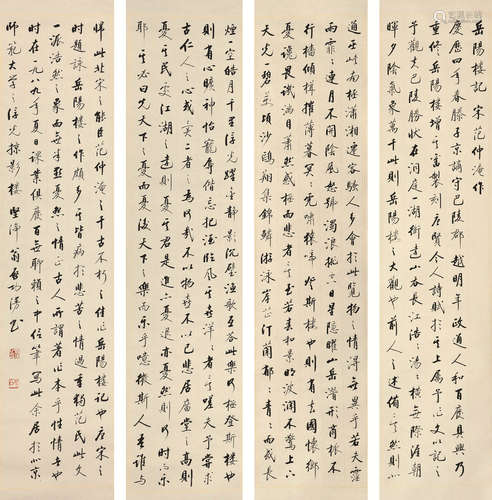 岳陽樓記　宋 范仲淹作
慶歷四年春滕子京謫守巴陵郡越明年政通人和百廢具興乃
重修岳陽樓增其舊製刻唐賢今人詩賦於其上屬予作文以記之
予觀夫巴陵勝狀在洞庭一湖銜遠山吞長江浩浩湯湯橫無際涯朝
暉夕陰氣象萬千此則岳陽樓之大觀也前人之述備矣然則北
通巫峽南極瀟湘遷客騷人多會於此覽物之情得無異乎若夫霪
雨霏霏連月不開陰風怒號濁浪排空日星隱曜山岳潛形商旅不
行檣傾楫摧薄暮冥冥虎嘯猿啼登斯樓也則有去國懷鄉
憂讒畏譏滿目蕭然感極而悲者矣至若春和景明波瀾不驚上下
天光一碧萬頃沙鷗翔集錦鱗游泳岸芷汀蘭郁郁青青而或長
煙一空皓月千里浮光躍金靜影沉璧漁歌互答此樂何極登斯樓也
則有心曠神怡寵辱偕忘把酒臨風其喜洋洋者矣嗟夫予嘗求
古仁人之心或異二者之為何哉不以物喜不以己悲居廟堂之高則
憂其民處江湖之遠則憂其君是進亦憂退亦憂然則何時而樂
耶其必曰先天下之憂而憂後天下之樂而樂乎噫微斯人吾誰與
歸此北宋之能臣范仲淹之千古不朽之佳作岳陽樓記也唐宋之
時題詠岳陽樓之作頗多皆病於悲苦之情過重獨范氏此文
一派浩然之象而無半點憂戚之情正古人所謂著作本乎性情者也
時在一九八九年夏日課業俱廢百無聊賴之中信筆寫此余居於北京
師範大學之浮光掠影樓 堅淨翁啟功漫書